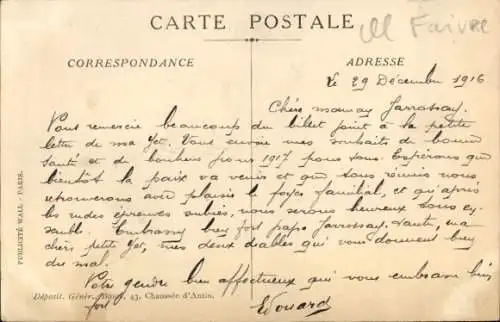 CARTE POSTALE
Ill Faivre
CORRESPONDANCE
ADRESSE
Le 29 Décembre 1916
Chère maman Jarrossay.
Vous remercie beaucoup du billet joint à la petite
lettre de ma Yet. Vous envoie mes souhaits de bonne
santé et de bonheur pour 1917 pour tous. Espérons que
bientôt la paix va venir et que tous réunis nous
retrouverons avec plaisir le foyer familial, et qu'après
les rudes épreuves subies, nous serons heureux tous en-
semble. Embrassez bien fort papa Jarrossay, ma
chère petite Yet, mes deux diables qui vous donnent bien
du mal.
Votre gendre bien affectueux qui vous embrasse bien
fort
Edouard
PUBLICITÉ WALL - PARIS.
Déposit. Génér. 43, Chaussée d'Antin.